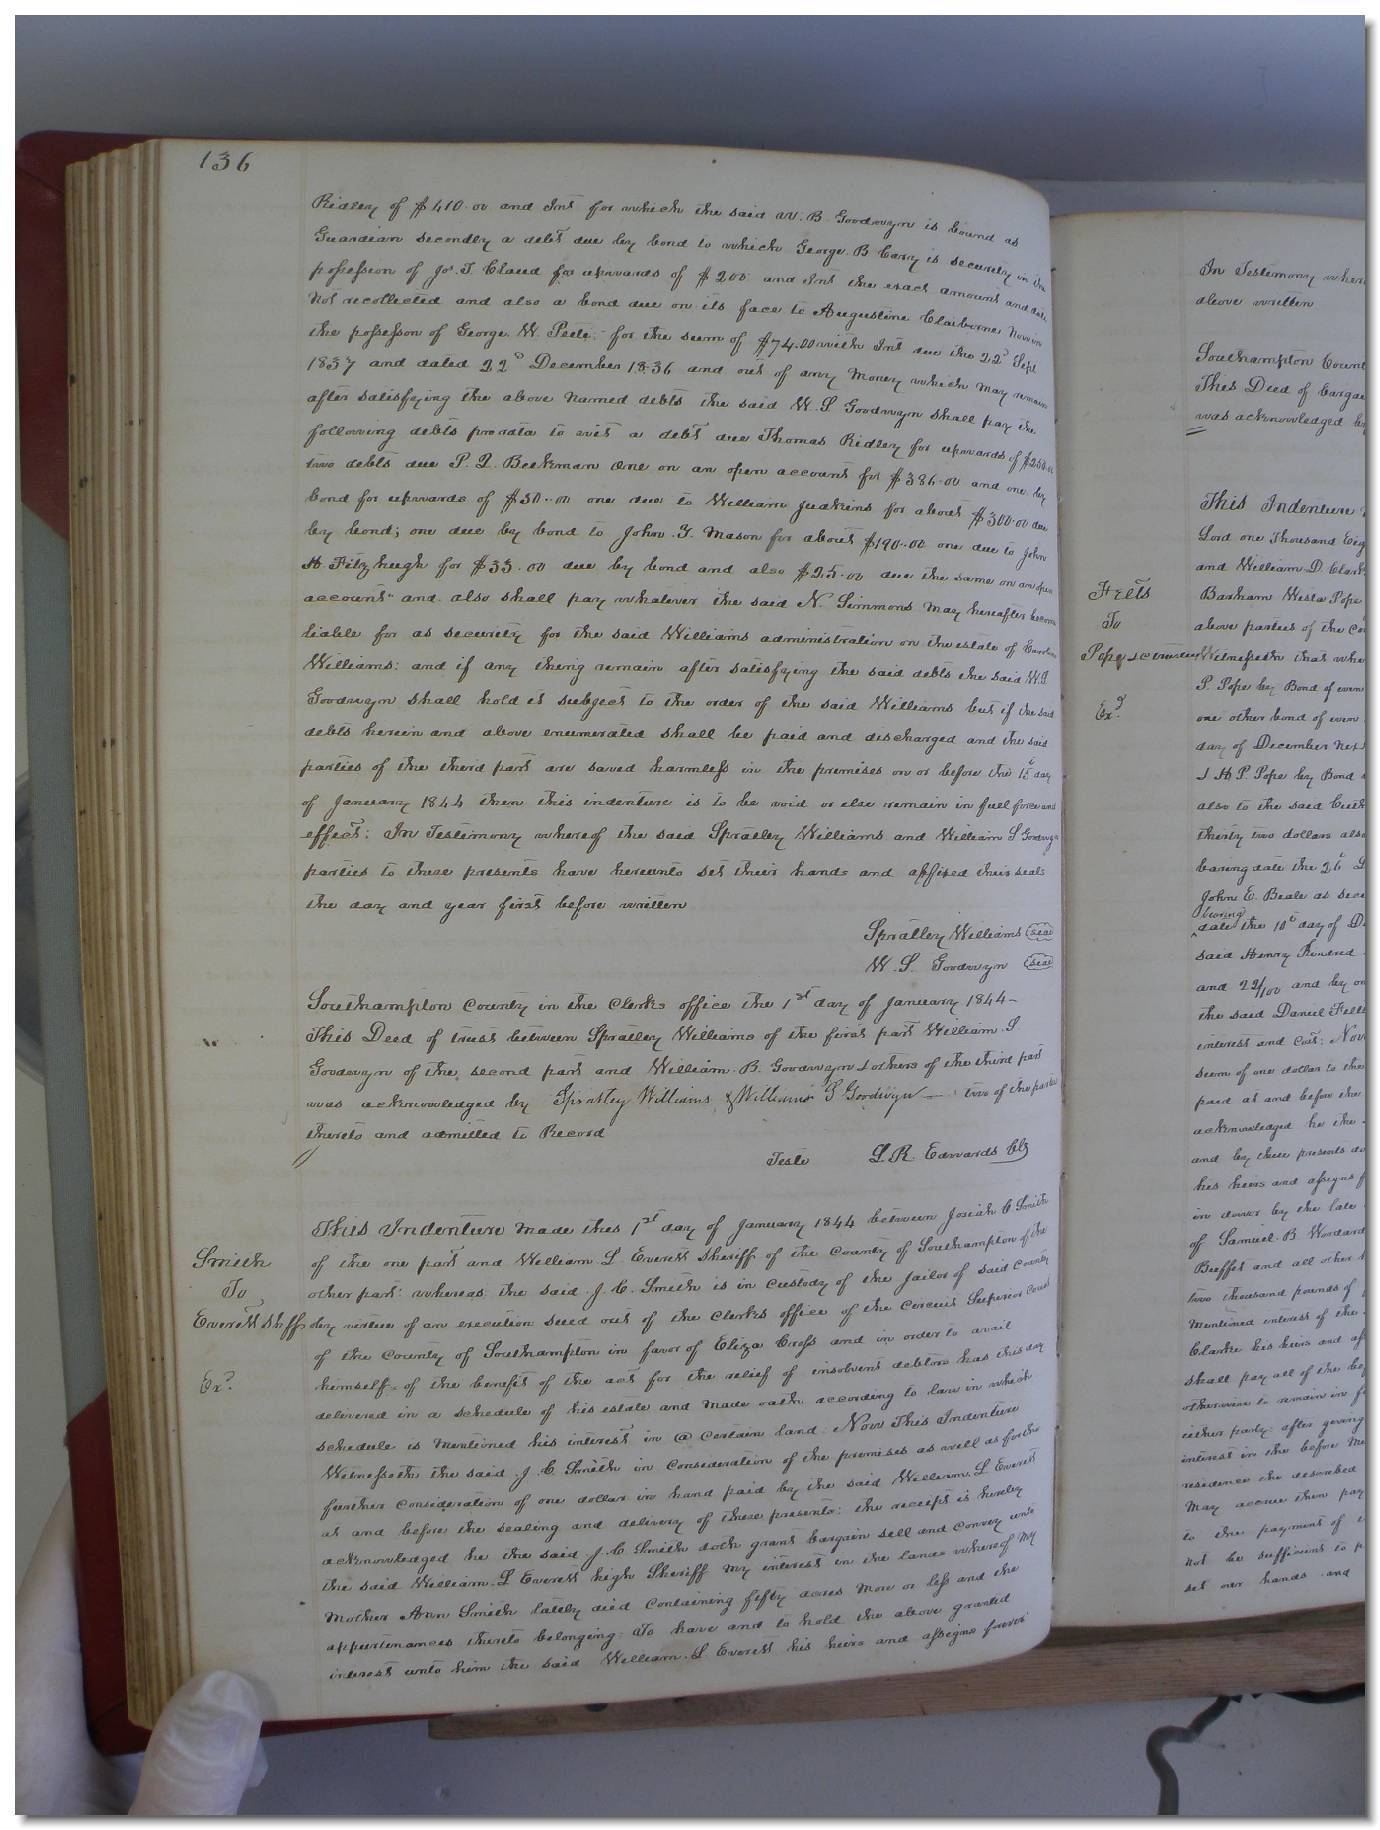 136
Ridley of $410.00 and Int for which the said W. B. Goodwyn is bound as
Guardian secondly a debt due by bond to which George. B Cary is security in the
possession of Jos. T. Claud for upwards of $200 and Int the exact amount and date
not recollected and also a bond due on its face to Augustine Claiborne now in
the possesson of George. W. Peete; for the sum of $74.00 with Int due the 22d Sept
1837 and dated 22d December 1836 and out of any money which may remain
after satisfying the above named debts the said W. S Goodwyn shall pay the
following debts prorata to wit a debt due Thomas Ridley for upwards of $250.00
two debts due P. Z. Beekman One on an open account for $386.00 and one by
bond for upwards of $50..00 one due to William Judkins for about $300.00 due
by bond; one due by bond to John. Y. Mason for about $190..00 one due to John
H. Fitzhugh for $33.00 due by bond and also $25.00 due the same on an open
account" and also shall pay whatever the said N. Simmons may hereafter become
liable for as security for the said Williams administration on the estate of
Williams: and if any thing remain after satisfying the said debts the said W. S.
Goodwyn shall hold it subject to the order of the said Williams but if the said
debts herein and above enumerated shall be paid and discharged and the said
parties of the third part are saved harmless in the premises on or before the 15t day
of January 1844 then this indenture is to be void or else remain in full force and
effect: In Testimony whereof the said Spratley Williams and William S Goodwyn
parties to these presents have hereunto set their hands and affixed their seals
the day and year first before written
Spratley Williams (seal)
W. S. Goodwyn (seal)
Southampton County in the Clerks office the 1st day of January 1844-
This Deed of trust between Spratley Williams of the first part William. S
Goodwyn of the second part and William. B. Goodwyn & others of the third part
was acknowledged by Spratley Williams & William S Goodwyn — two of the parties
thereto and admitted to Record
Teste L. R. Edwards Clk
Smith
To
Everett Shff
Exd.
This Indenture made this 1st day of January 1844 between Josiah C Smith
of the one part and William. L Everett Sheriff of the County of Southampton of the
other part: whereas the said J. C. Smith is in custody of the Jailor of said County
by virtue of an execution sued out of the Clerks office of the Circuit Superior Court
of the County of Southampton in favor of Eliza Cross and in order to avail
himself of the benefit of the act for the relief of insolvent debtors has this day
delivered in a schedule of his estate and made oath according to law in which
schedule is mentioned his interest in @ certain land. Now This Indenture
Witnesseth the said J. C. Smith in consideration of the premises as well as for the
further consideration of one dollar in hand paid by the said William. L Everett
at and before the sealing and delivery of these presents: the receipt is hereby
acknowledged he the said J. C Smith doth grant bargain sell and convey unto
the said William. L Everett high Sheriff my interest in the land whereof my
Mother Ann Smith lately died containing fifty acres more or less and the
appurtenances thereto belonging. To have and to hold the above granted
interest unto him the said William. L Everett his heirs and assigns forever
Felts
To
Exd.
In Testimony wher
above written
Southampton Count
This Deed of barga
was acknowledged by
This Indenture
Lord one Thousand Eig
and William. D. Clark
Barham Wesla Pope
above parties of the Co
Witnesseth that whe
P. Pope by Bond of even
one other bond of even
day of December next
J H P. Pope by Bond
also to the said
thirty two dollars also
baring date the 26
John E. Beale as secu
bearing
date the 10t day of D
said Henry Kindred
and 22/100 and by on
the said Daniel Felts
interest and cost: Now
sum of one dollar to the
paid at and before the
acknowledged he the
and by these presents do
his heirs and assigns f
in dower by the late
of Samuel B. Woodard
Buffet and all other
two thousand pounds of
mentioned interest of the
Clarke his heirs and as
shall pay all of the be
otherwise to remain in f
either party: after giving
interest in the before me
residence the described
may accrue then pay
to the payment of
not be sufficient to p
set our hands and